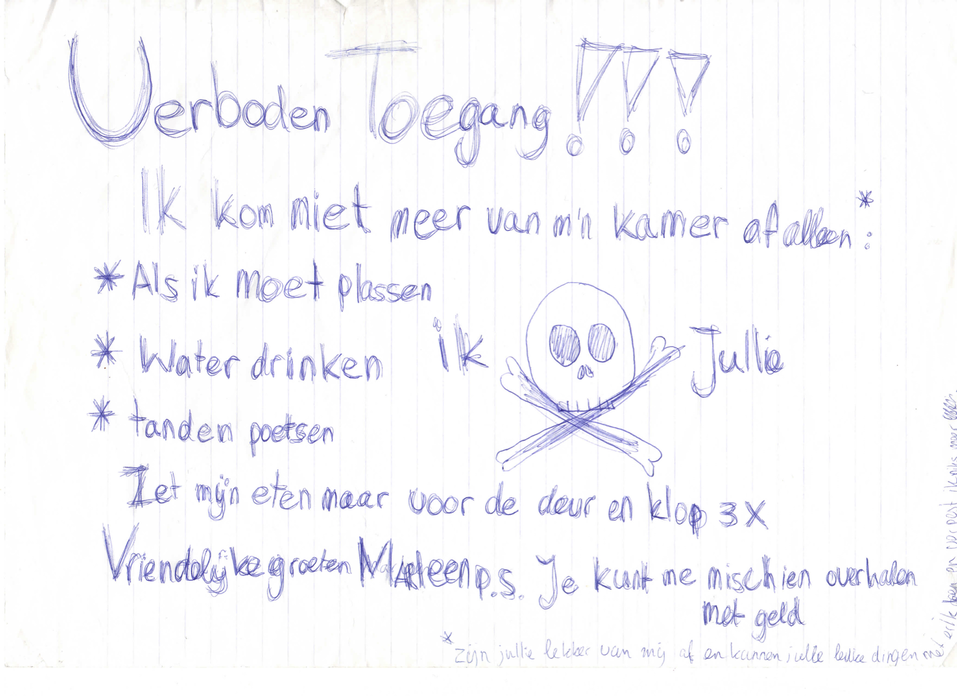 Verboden Toegang!!!
Ik kom niet meer van m'n kamer af alleen:*
* Als ik moet plassen
* Water drinken ik Jullie
* tanden poetsen
Zet mijn eten maar voor de deur en klop 3x
Vriendelijke groeten Marleen p.s. Je kunt me mischien overhalen
met geld
* Zijn jullie lekker van mij af en kunnen jullie leuke dingen met
erik doen en